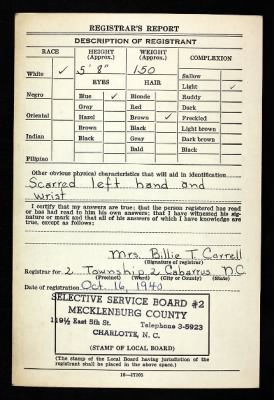 REGISTRAR'S REPORT
DESCRIPTION OF REGISTRANT
RACE HEIGHT (Approx.) WEIGHT (Approx.) COMPLEXION
White ✓ 5' 8" 150 Sallow
EYES HAIR Light ✓
Negro Blue ✓ Blonde Ruddy
Gray Red Dark
Oriental Hazel Brown ✓ Freckled
Brown Black Light brown
Indian Black Gray Dark brown
Bald Black
Filipino
Other obvious physical characteristics that will aid in identification
Scarred left hand and
wrist
I certify that my answers are true; that the person registered has read
or has had read to him his own answers; that I have witnessed his sig-
nature or mark and that all of his answers of which I have knowledge
are true, except as follows:
Mrs. Billie T. Correll
(Signature of registrar)
Registrar for 2 Township 2 Cabarrus N.C.
(Precinct) (Ward) (City or County) (State)
Date of registration Oct. 16, 1940
SELECTIVE SERVICE BOARD #2
MECKLENBURG COUNTY
119½ East 5th St.
Telephone 3-5923
CHARLOTTE, N. C.
(STAMP OF LOCAL BOARD)
(The stamp of the Local Board having jurisdiction of the
registrant shall be placed in the above space.)
16—17105